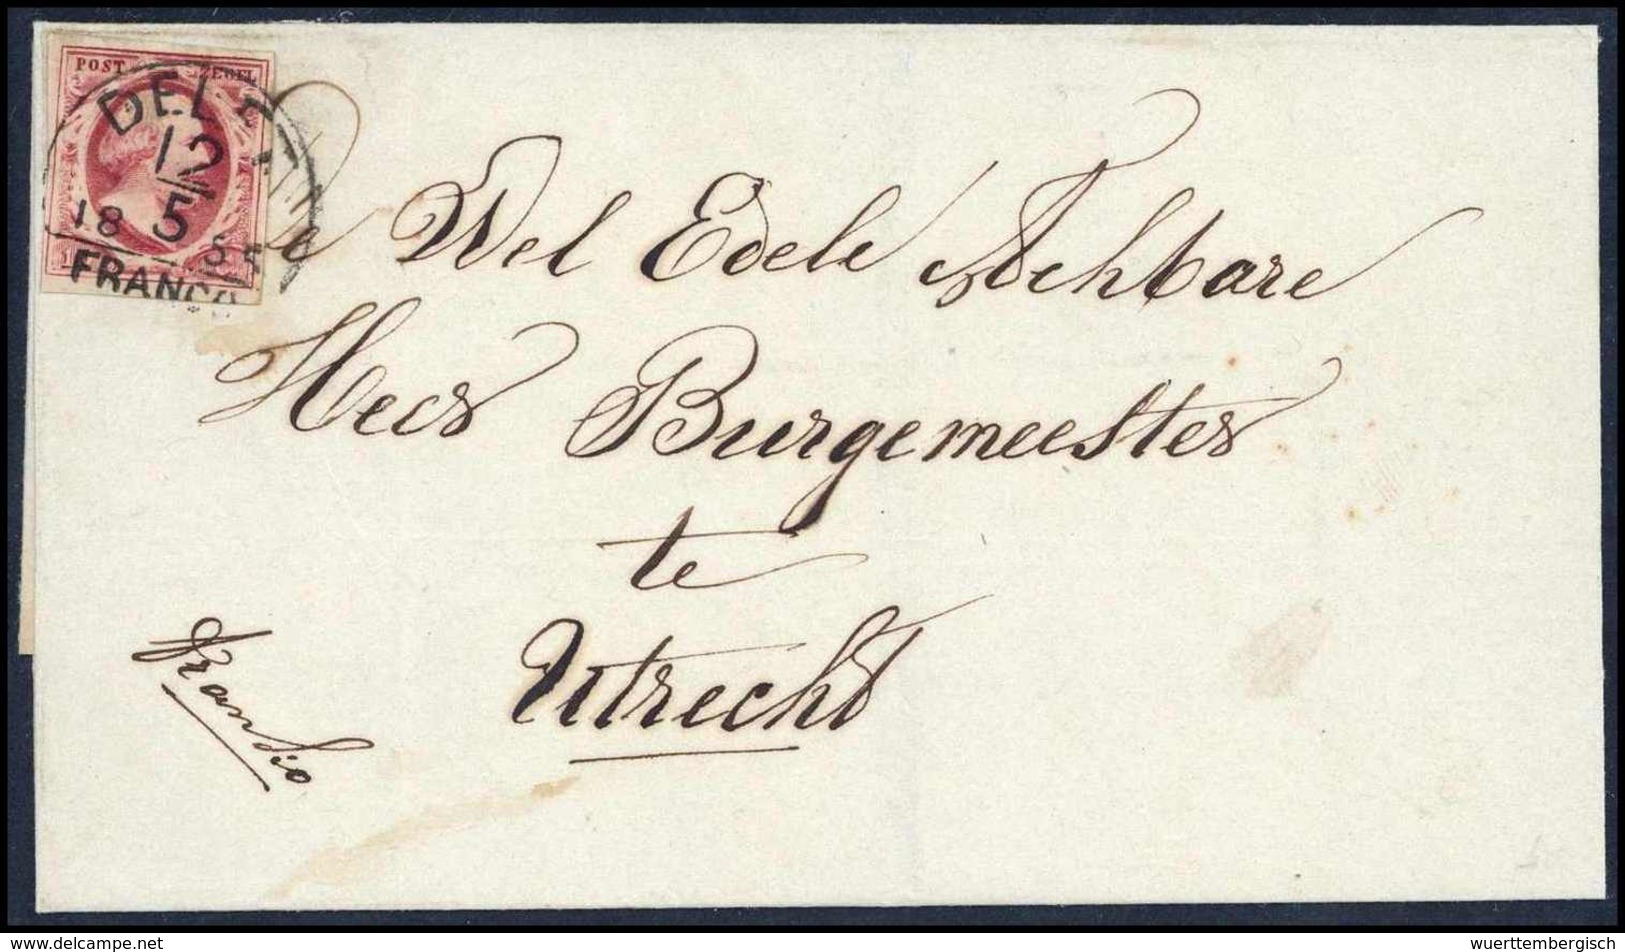 POST ZEGEL
DELFT
12
5
18 55
FRANCO
de Wel Edele Achtbare
Heer Burgemeester
te
Utrecht
Franco
www.delcampe.net
wuerttembergisch